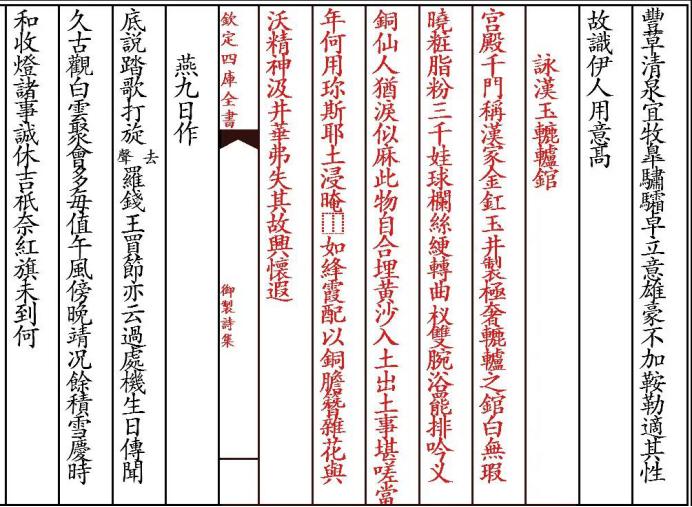 豐草清泉宜牧皐驌驦皁立意雄豪不加鞍勒適其性
故識伊人用意髙
詠漢玉轆轤錧
宫殿千門稱漢家金釭玉井製極奢轆轤之錧白無瑕
曉粧脂粉三千娃球欄絲綆轉曲杈雙腕浴羆排吟乂
銅仙人猶淚似麻此物自合埋黄沙入土出土事堪嗟當
年何用珎斯耶土浸晻如絳霞配以銅膽簪雜花與
沃精神汲井華弗失其故興懷遐
欽定四庫全書
御製詩集
燕九日作
底説踏歌打旋去聲羅錢王買節亦云過處機生日傳聞
久古觀白雲聚會多每值午風傍晚靖况餘積雪慶時
和收燈諸事誠休吉祇奈紅旗未到何